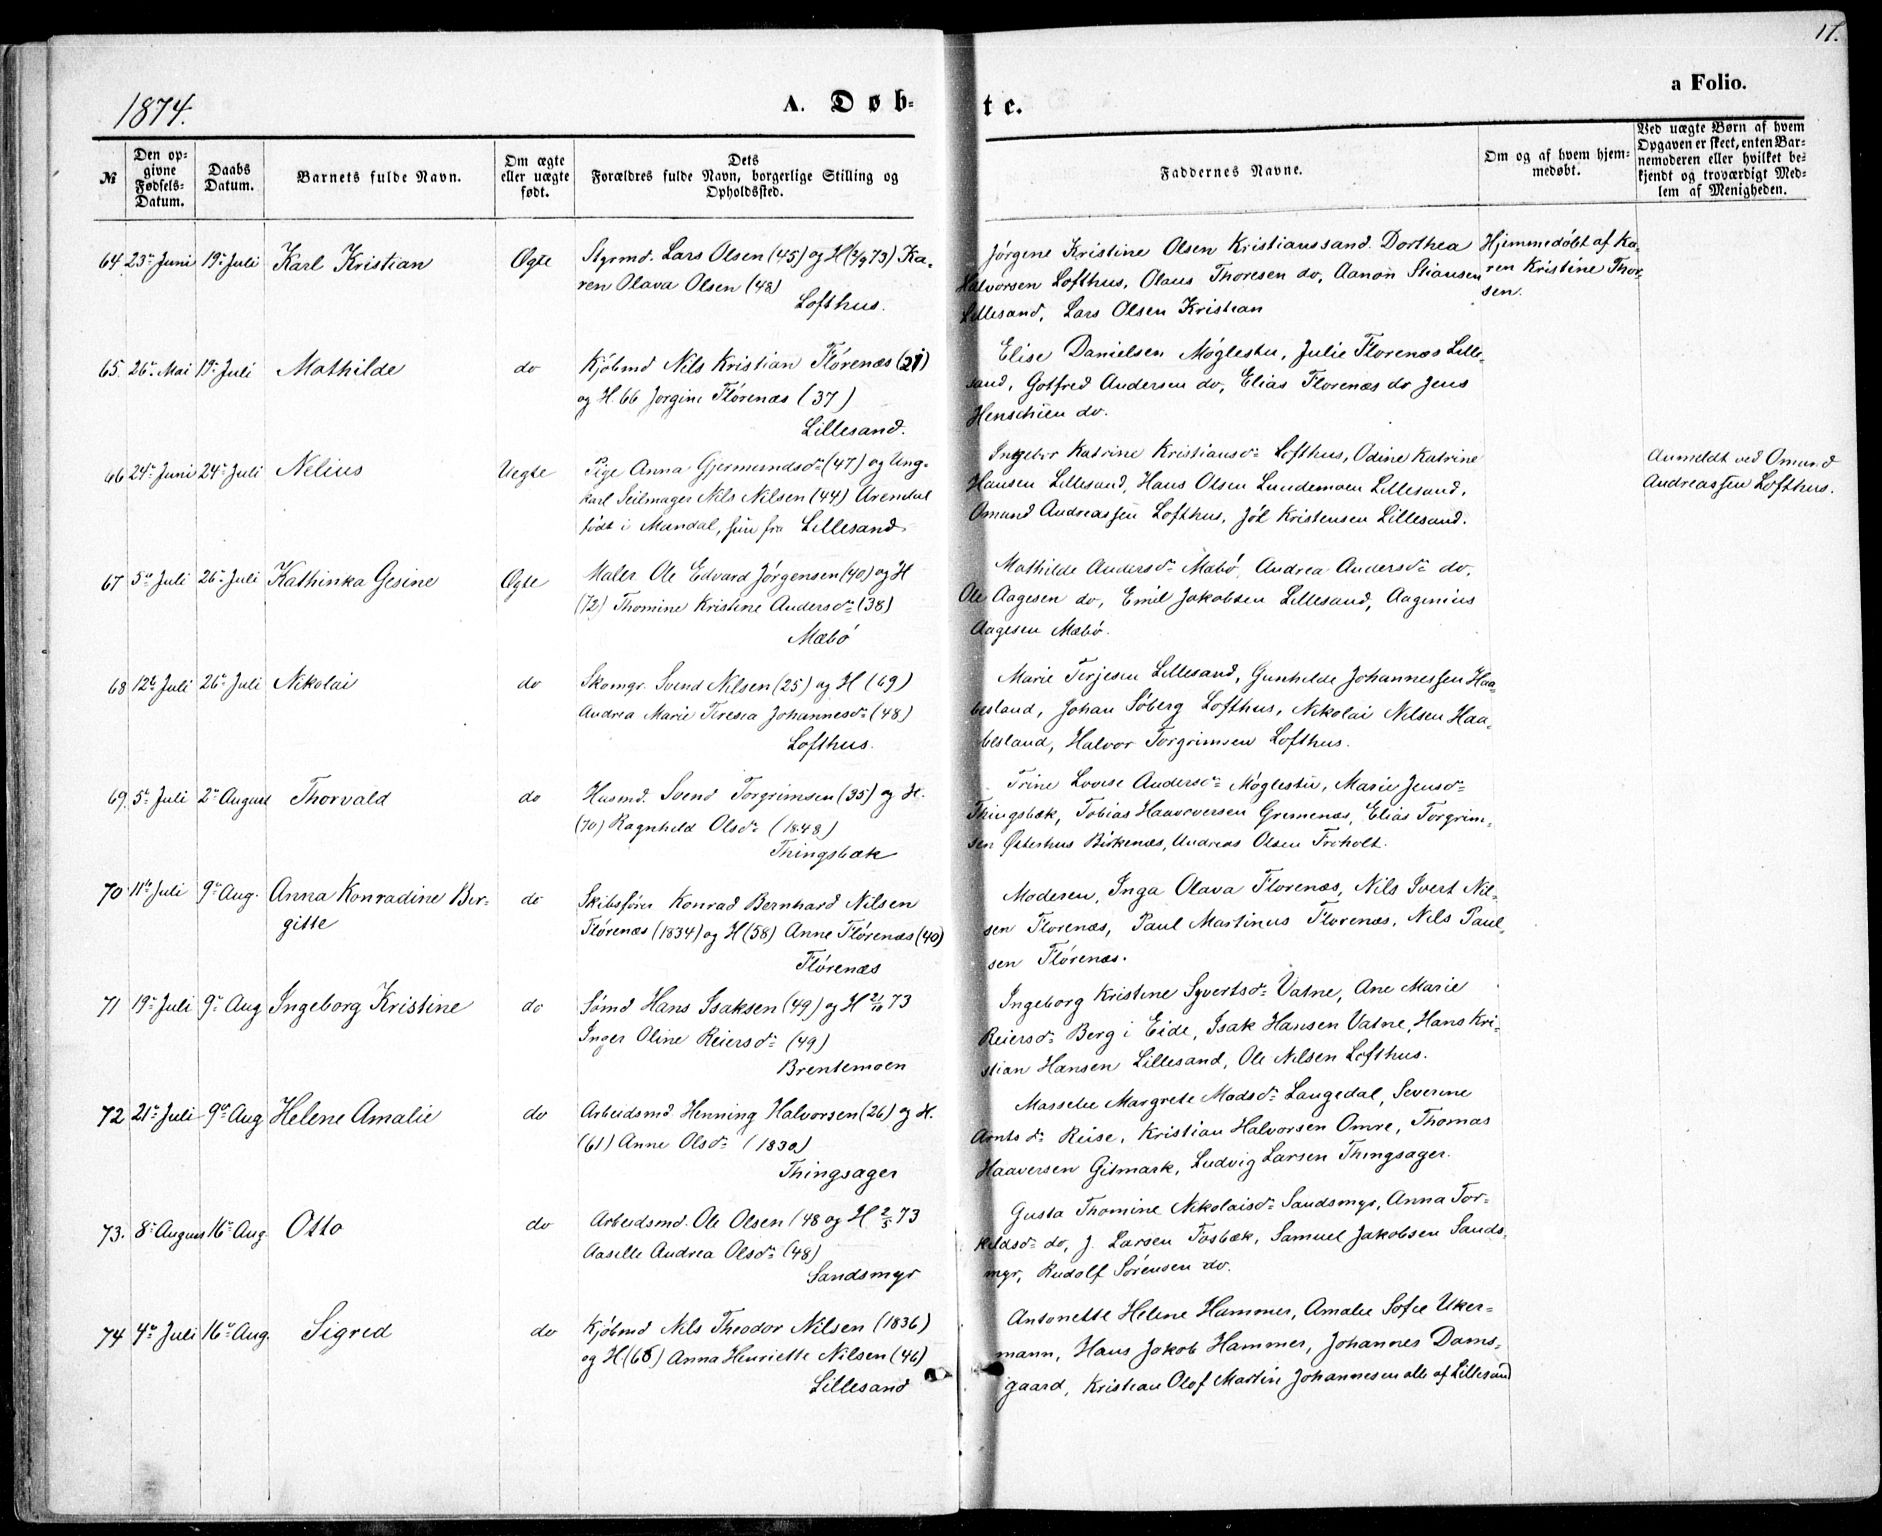 17.
1874.
A. Døb-
te.
a Folio.
№
Den op-
givne
Fødsels-
Datum.
Daabs
Datum.
Barnets fulde Navn.
Om ægte
eller uægte
født.
Dets
Forældres fulde Navn, borgerlige Stilling og
Opholdssted.
Faddernes Navne.
Om og af hvem hjem-
medøbt.
Ved uægte Børn af hvem
Opgaven er skeet, enten Bar-
nemoderen eller hvilket be-
kjendt og troværdigt Med-
lem af Menigheden.
64 23de Juni 19de Juli Karl Kristian Ægte Styrmd. Lars Olsen (45) og H (2/9 73) Ka-
ren Olava Olsen (48)
Lofthus.
Jørgene Kristine Olsen Kristianssand. Dorthea
Halvorsen Lofthus, Olaus Thoresen do, Aanon Stiansen
Lillesand, Lars Olsen Kristian
Hjemmedøbt af Ka-
ren Kristine Thor-
sen.
65. 26de Mai 19de Juli Mathilde do Kjøbmd Nils Kristian Flørenæs (21)
og H. 66 Jorgine Flørenæs (37)
Lillesand.
Elise Danielsen Møglestu, Julie Florenæs Lille-
sand, Gotfred Andersen do, Elias Florenæs do Jens
Henschien do.
66 24de Juni 24de Juli Nelius Uegte Pige Anna Gjermundsdr (47) og Ung-
karl Seilmager Nils Nilsen (44) Arendal
født i Mandal, hun fra Lillesand
Ingebor Katrine Kristiansdr Lofthus, Odine Katrine
Hansen Lillesand, Hans Olsen Lundemoen Lillesand,
Omund Andreassen Lofthus, Jól Kristensen Lillesand.
Anmeldt ved Omund
Andreassen Lofthus.
67 5te Juli 26de Juli Kathinka Gesine Ægte Maler Ole Edvard Jørgensen (40) og H
(72) Thomine Kristine Andersdr (38)
Mæbø
Mathilde Andersdr Mabø, Andrea Andersdr do,
Ole Aagesen do, Emil Jakobsen Lillesand, Aagenius
Aagesen Mæbø.
68 12te Juli 26de Juli Nikolai do Skomgr. Svend Nilsen (25) og H (69)
Andrea Marie Teresia Johannesdr (48)
Lofthus.
Marie Terjesen Lillesand, Gunhilde Johannessen Haa-
besland, Johan Søberg Lofthus, Nikolai Nilsen Haa-
besland, Halvor Torgrimsen Lofthus.
69. 5te Juli 2den August Thorvald do Husmd. Svend Torgrimsen (35) og H.
(70) Ragnhild Olsdr (1848)
Thingsbæk
Trine Lovise Andersdr Møglestu, Marie Jensdr
Thingsbæk, Tobias Haavorsen Gremenæs, Elias Torgrim-
sen Østerhus Birkenæs, Andreas Olsen Froholt.
70 11te Juli 9de Aug. Anna Konradine Ber-
gitte
do Skibsfører Konrad Bernhard Nilsen
Flørenæs (1834) og H (58) Anne Flørenæs (40)
Flørenæs
Moderen, Inga Olava Florenæs, Nils Ivert Nil-
sen Florenæs, Paul Martinus Florenæs, Nils Paul-
sen Flørenæs.
71 19de Juli 9de Aug Ingeborg Kristine do Sømd Hans Isaksen (49) og H 21/10 73
Inger Oline Reiersdr (49)
Brentemoen
Ingeborg Kristine Syvertsdr Vatne, Ane Marie
Reiersdr Berg i Eide, Isak Hansen Vatne, Hans Kri-
stian Hansen Lillesand, Ole Nilsen Lofthus.
72 21de Juli 9de Aug Helene Amalie do Arbeidsmd. Henning Halvorsen (26) og H.
(61) Anne Olsdr (1830)
Thingsager
Masselie Margrete Madsdr Langedal, Severine
Arntsdr Reise, Kristian Halvorsen Omre, Thomas
Haaversen Gitmark, Ludvig Larsen Thingsager.
73. 8de August 16de Aug. Otto do Arbeidsmd. Ole Olsen (48 og H 2/5 73
Aaselle Andrea Olsdr (48)
Sandsmyr
Gusta Thomine Nikolaisdr Sandsmyr, Anna Tor-
kildsdr do, J. Larsen Fosbæk, Samuel Jakobsen Sands-
myr, Rudolf Sørensen do.
74 4de Juli 16de Aug. Sigred do Kjøbmd Nils Theodor Nilsen (1836)
og H (68) Anna Henriette Nilsen (46)
Lillesand
Antonette Helene Hammer, Amalie Sofie Uker-
mann, Hans Jakob Hammer, Johannes Dams-
gaard, Kristian Olof Martin Johannesen alle af Lillesand